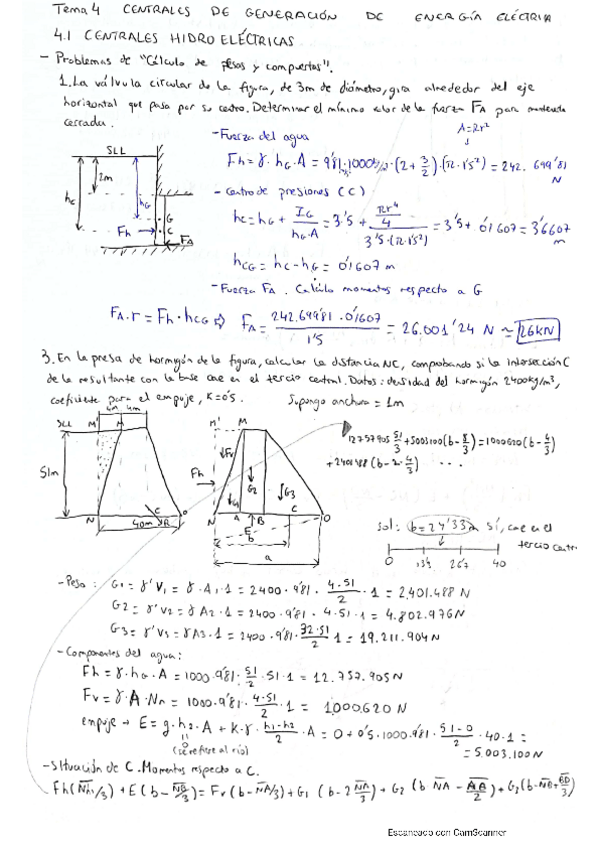 Tema 4 CENTRALES DE GENERACIÓN DE ENERGÍA ELÉCTRICA
4.1 CENTRALES HIDROELÉCTRICAS
- Problemas de "Cálculo de pesos y compuertas".
1. La válvula circular de la figura, de 3m de diámetro, gira alrededor del eje
horizontal que pasa por su centro. Determinar el mínimo valor de la fuerza FA para mantenerla
cerrada.
A=πr²
- Fuerza del agua
Fh = γ · hG · A = 9'81·1000 · (2 + 3/2) · (π · 1'5²) = 242.699'81 N
SLL
2m
hc
hG
G
C
Fh
FA
- Centro de presiones (C)
hc = hG + IG/(hG·A) = 3'5 + (πr⁴/4)/(3'5·(π·1'5²)) = 3'5 + 0'1607 = 3'6607 m
hCG = hc - hG = 0'1607 m
- Fuerza FA. Cálculo momentos respecto a G
FA · r = Fh · hCG ⇒ FA = (242.699'81 · 0'1607)/1'5 = 26.001'24 N ≈ 26KN
3. En la presa de hormigón de la figura, calcular la distancia NC, comprobando si la intersección C
de la resultante con la base cae en el tercio central. Datos: densidad del hormigón 2400kg/m³,
coeficiente para el empuje, K=0'5. Supongo anchura = 1m
4m 4m
SLL M' M
51m
N 40m R O
C
M' M
Fh
Fv
G1
G2
G3
N A B C O
E
b
a
12757905 51/3 + 5003100(b - 8/3) = 1000620(b - 4/3)
+ 2401488(b - 2·4/3) ...
sol: b = 24'33m sí, cae en el
tercio central
0 13'4 26'7 40
- Peso: G1 = γ'V1 = γ · A1 · 1 = 2400 · 9'81 · 4·51/2 · 1 = 2.401.488 N
G2 = γ'V2 = γ A2 · 1 = 2400 · 9'81 · 4·51 · 1 = 4.802.976 N
G3 = γ'V3 = γ A3 · 1 = 2400 · 9'81 · 32·51/2 · 1 = 19.211.904 N
- Componentes del agua:
Fh = γ · hG · A = 1000 · 9'81 · 51/2 · 51 · 1 = 12.757.905 N
Fv = γ · A · = 1000 · 9'81 · 4·51/2 · 1 = 1000.620 N
empuje → E = g · h2 · A + K · γ · (h1-h2)/2 · A = 0 + 0'5 · 1000 · 9'81 · (51-0)/2 · 40 · 1 =
0
(se refiere al río)
= 5.003.100 N
- Situación de C. Momentos respecto a C.
Fh(/3) + E(b - /3) = Fv(b - NA/3) + G1(b - 2NA/3) + G2(b - NA - AB/2) + G3(b - NB + BO/3)
Escaneado con CamScanner